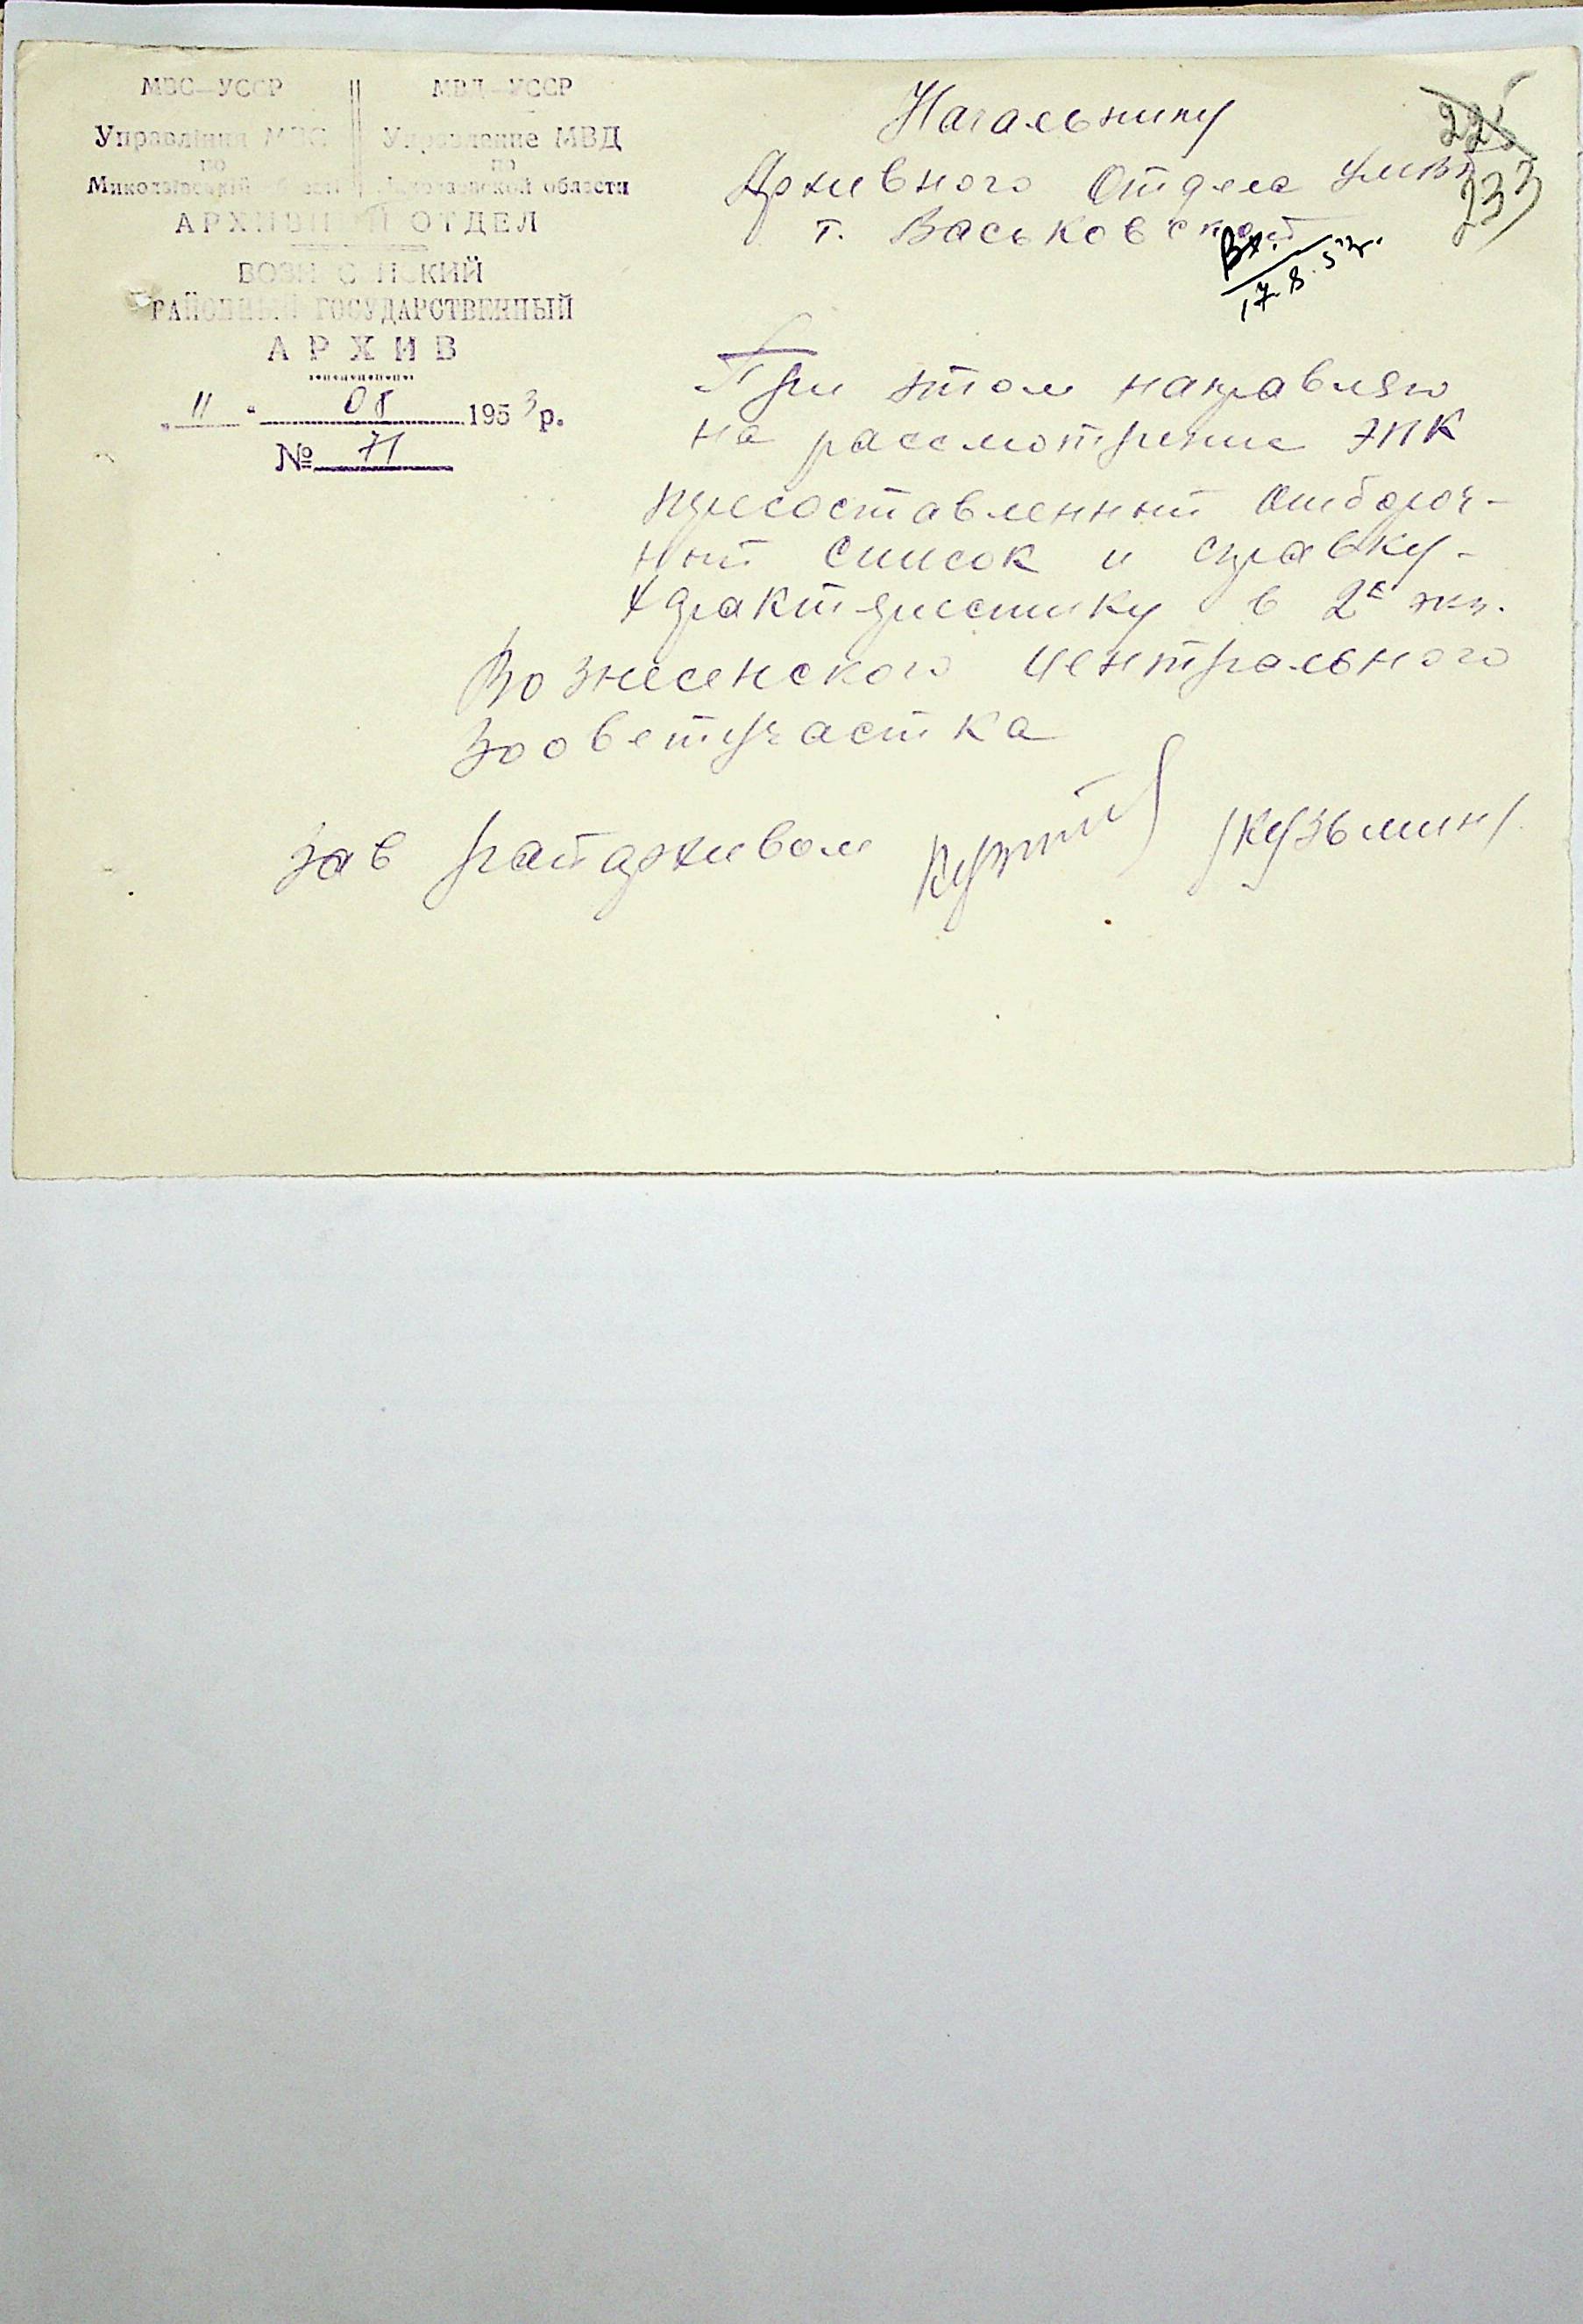 МВС—УССР МВД—УССР
Управління МВС Управление МВД
по по
Миколаївській області Николаевской области
АРХИВНЫЙ ОТДЕЛ
ВОЗНЕСЕНСКИЙ
РАЙОННЫЙ ГОСУДАРСТВЕННЫЙ
АРХИВ
„ 11 “ 08 1953 р.
№ 71
225
233
Начальнику
Архивного Отдела УМВД
т. Васьковской
Вх.
17.8.53г.
При этом направляю
на рассмотрение ЭПК
пресоставленный отбороч-
ный список и справку-
характеристику в 2х экз.
Вознесенского Центрального
Зооветучастка
Зав райархивом /Кузьмин/